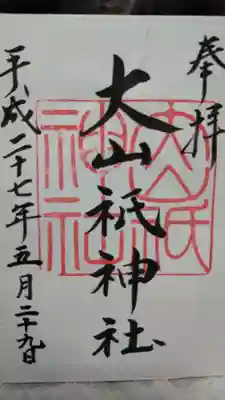 奉拝
大山祇神社
平成二十七年五月二十九日
大山祇
神社